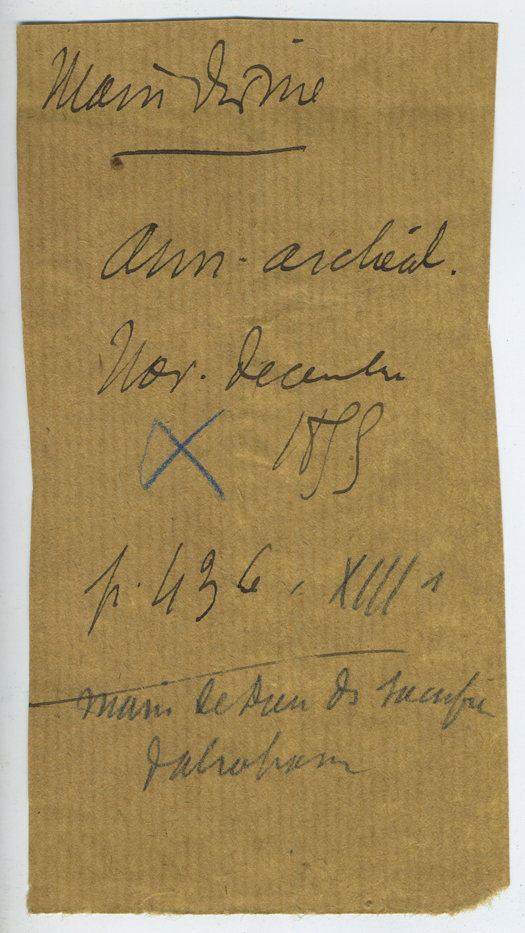 Main divine
Ann. archéol.
Nov. Decembre
1855
p. 436, XIII s
main de Dieu ds sacrifice
d'abraham